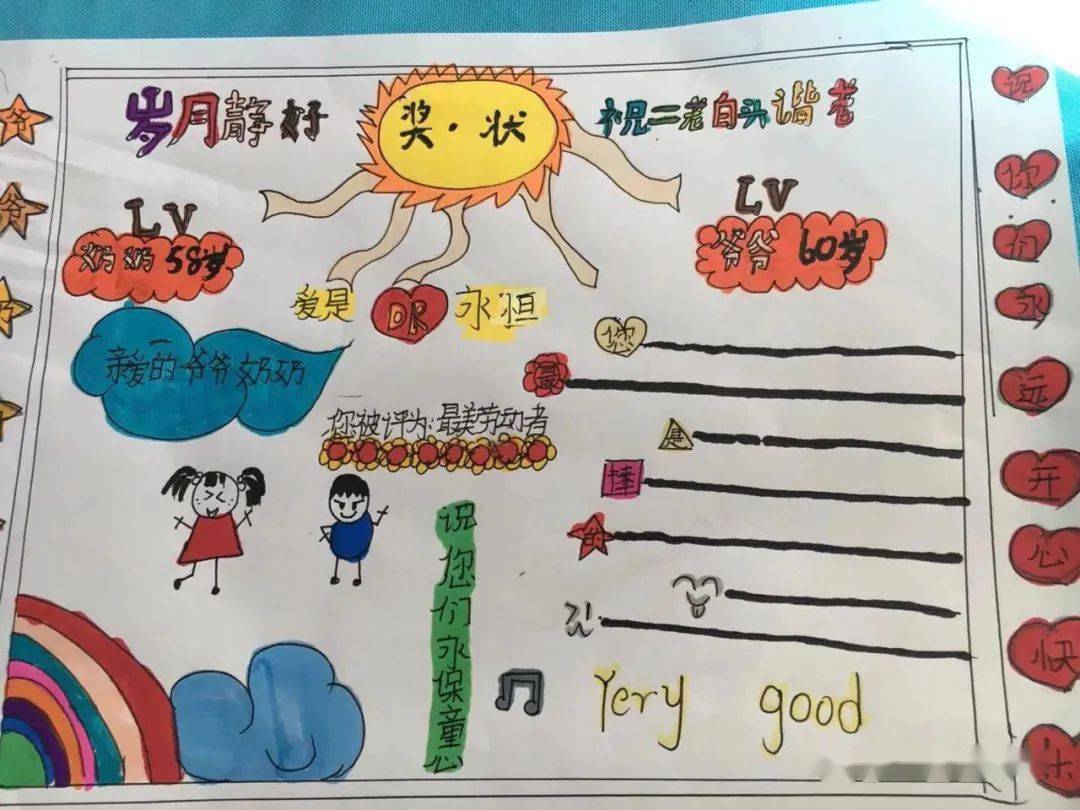 岁月静好
奖·状
祝二老白头谐老
LV
奶奶58岁
LV
爷爷60岁
爱是
DR
永恒
亲爱的爷爷奶奶
您被评为:最美劳动者
您
最
是
棒
的
祝您们永保童心
Yery good
爷
爷
奶
祝
你
们
永
远
开
心
快
乐